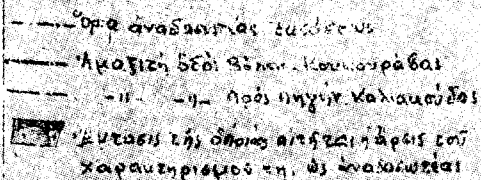 Ὅρια ἀναδασωτέας ἐκτάσεως
Ἁμαξιτή ὁδός Κουκουράβας
-"- -"- πρός πηγήν Καλιακούδας
Ἔκτασις τῆς ὁποίας αἰτῆται ἡ ἄρσις τοῦ
χαρακτηρισμοῦ τη, ὡς ἀναδασωτέας